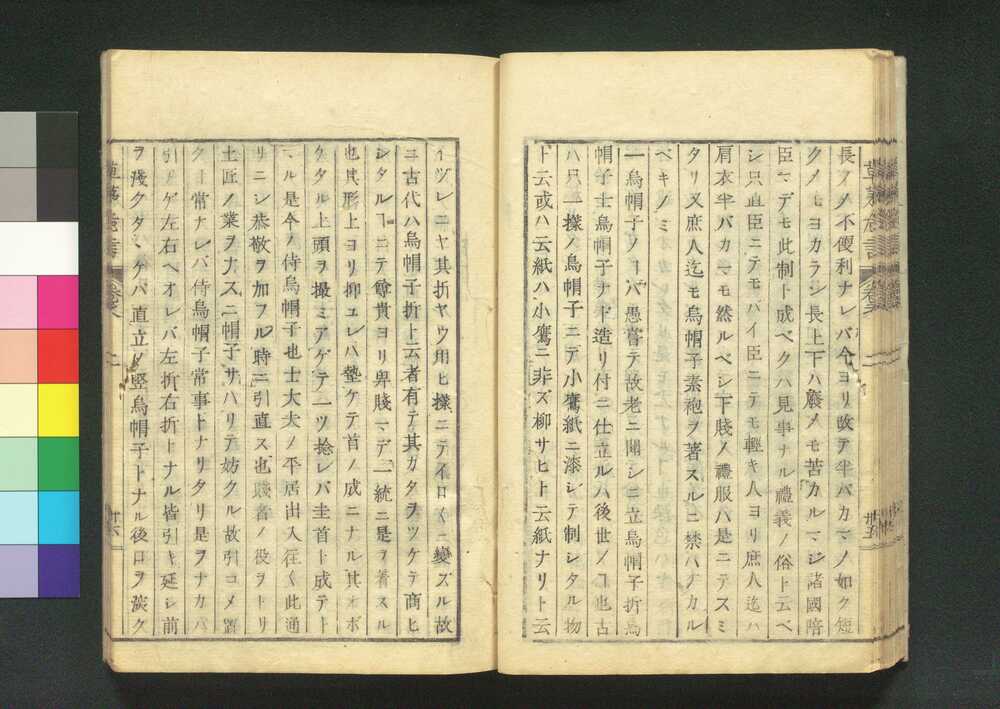 長クメノ不便利ナレバ今ヨリ改テ半バカマノ如ク短
クメモヨカラン長上下ハ廢メモ苦カルマジ諸國陪
臣マデモ此制ト成ベクハ見事ナル禮義ノ俗ト云ベ
シ只直臣ニテモバイ臣ニテモ輕キ人ヨリ庶人迄ハ
肩衣半バカマモ然ルベシ下賤ノ禮服ハ是ニテスミ
タリ又庶人迄モ烏帽子素袍ヲ著スルニ禁ハナカル
ベキノミ
一烏帽子ノヿハ愚嘗テ故老ニ聞シニ立烏帽子折烏
帽子士烏帽子ナド造リ付ニ仕立ルハ後世ノヿ也古
ハ只一様ノ烏帽子ニテ小鷹紙ニ漆シテ制レタル物
ト云或ハ云紙ハ小鷹ニ非ズ柳サヒト云紙ナリト云
卅五
イヅレニヤ其折ヤウ用ヒ様ニテイロ〱ニ變ズル故
ニ古代ハ烏帽子折ト云者有テ其カタヲツケテ商ヒ
シタルヿニテ尊貴ヨリ卑賤マデ一統ニ是ヲ著スル
也其形上ヨリ抑ユレバ墊ケテ首ノ成ニナル其オボ
クタル上頭ヲ撮ミアゲテ一ツ捻レバ圭首ト成テト
マル是今ノ侍烏帽子也士大夫ノ平居出入往〱此通
リニシ恭敬ヲ加フル時ニ引直ス也賤者ノ役ヲトリ
土匠ノ業ヲナスニ帽子サハリテ妨クル故引コメ置
ク ヿ常ナレバ侍烏帽子常事トナリタリ是ヲナカバ
引アゲ左右ヘオレバ左折右折トナル皆引キ延シ前
ヲ殘クタヽケバ直立メ竪烏帽子トナル後口ヲ淡ク
草茅危言
卅六